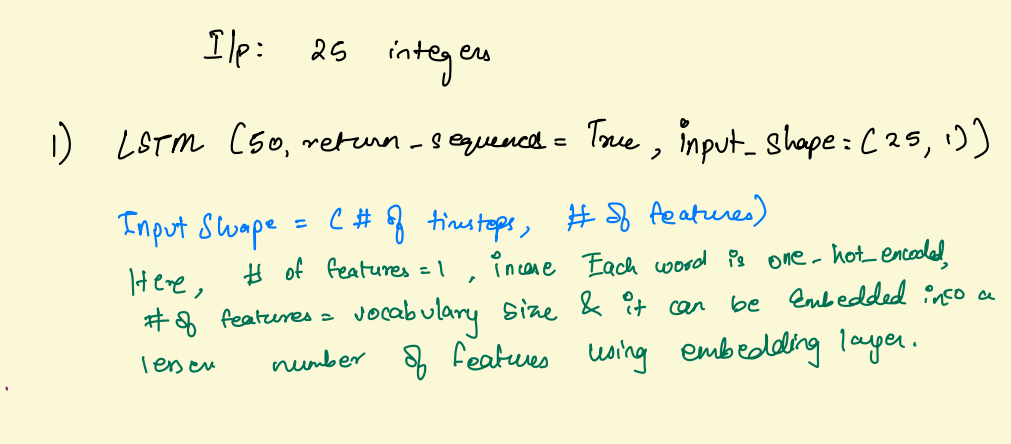 I/p: 25 integers
1) LSTM (50, return_sequences = True, input_shape = (25, 1))
Input Shape = (# of timesteps, # of features)
Here, # of features = 1, incase Each word is one-hot_encoded,
# of features = vocabulary size & it can be embedded into a
lesser number of features using embedding layer.